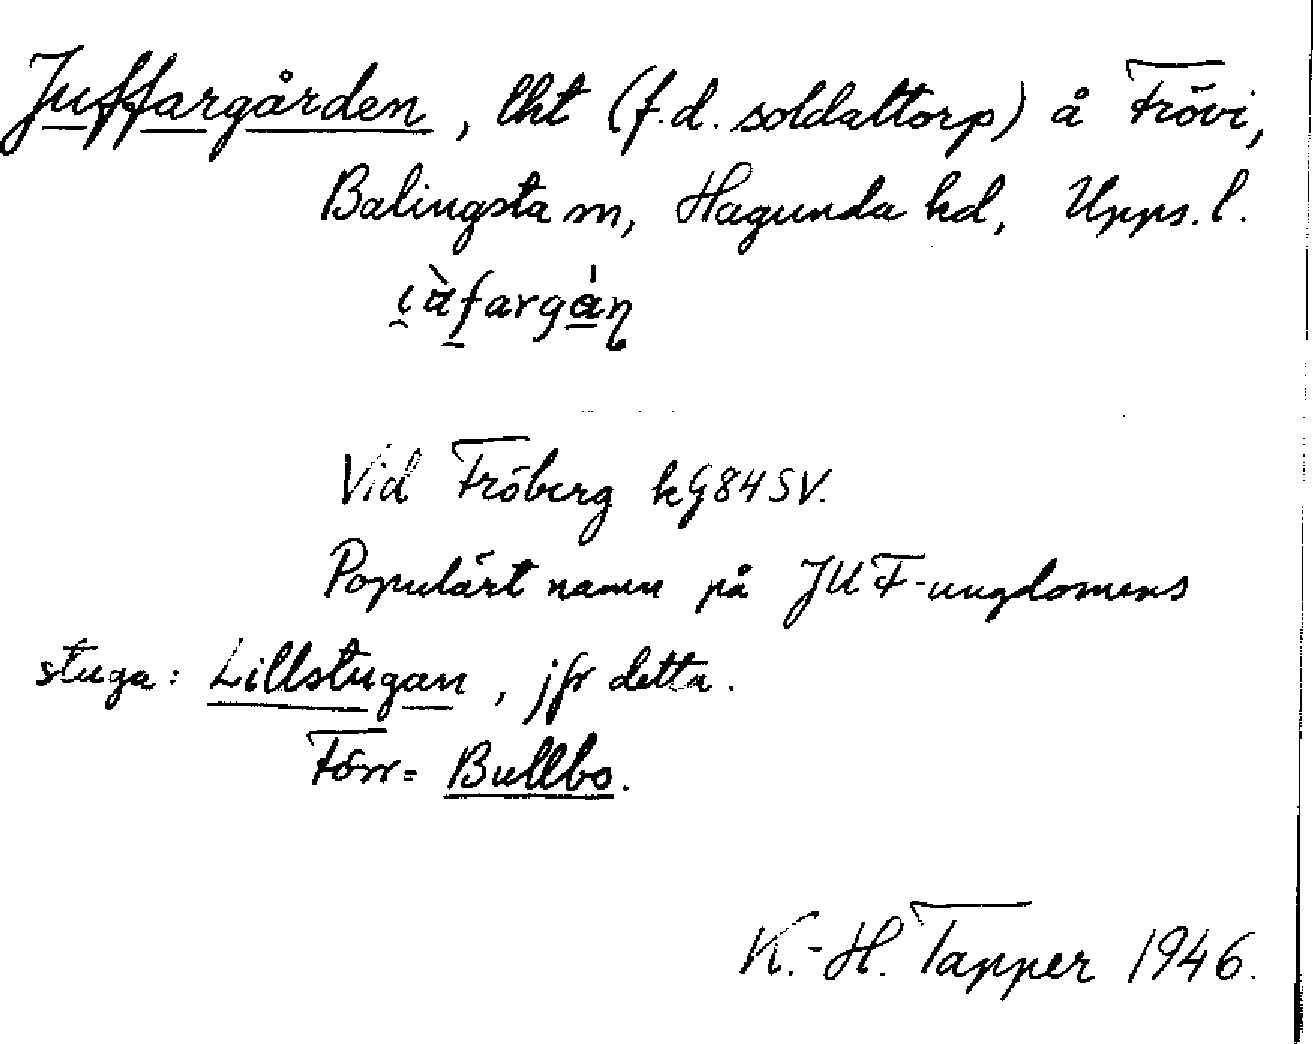 Juffargården, lht (f.d. soldattorp) å Frövi,
Balingsta sn, Hagunda hd, Upps. l.
Vid Fröberg kG84SV.
Populärt namn på JUF-ungdomens
stuga: Lillstugan, jfr detta.
Förr = Bullbo.
K.-H. Tapper 1946.